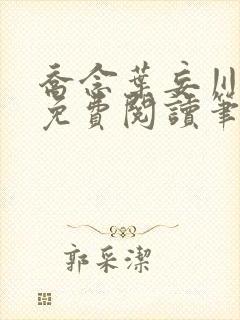 喬念葉妄川
免費閱讀筆
郭采潔